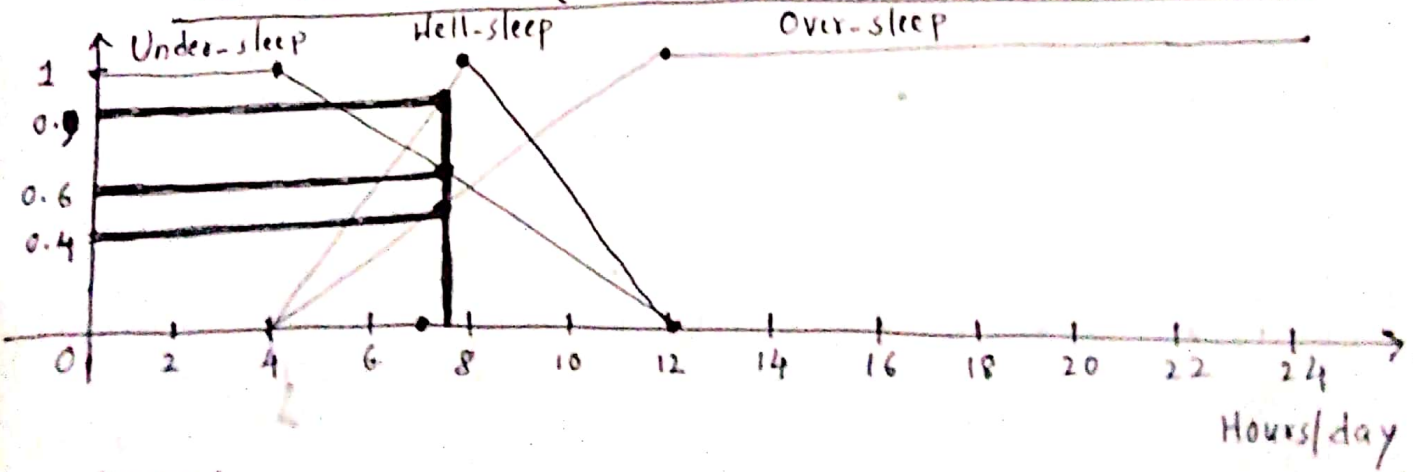 Under-sleep Well-sleep Over-sleep
1
0.9
0.6
0.4
0 2 4 6 8 10 12 14 16 18 20 22 24
Hours/day